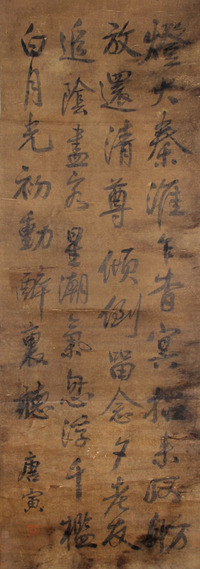 燈火秦淮乍杳冥拓東歌舫
放還清尊傾倒留念夕老夜
追陰盡客星潮氣息浮千檻
白月光初動醉裏聽
唐寅